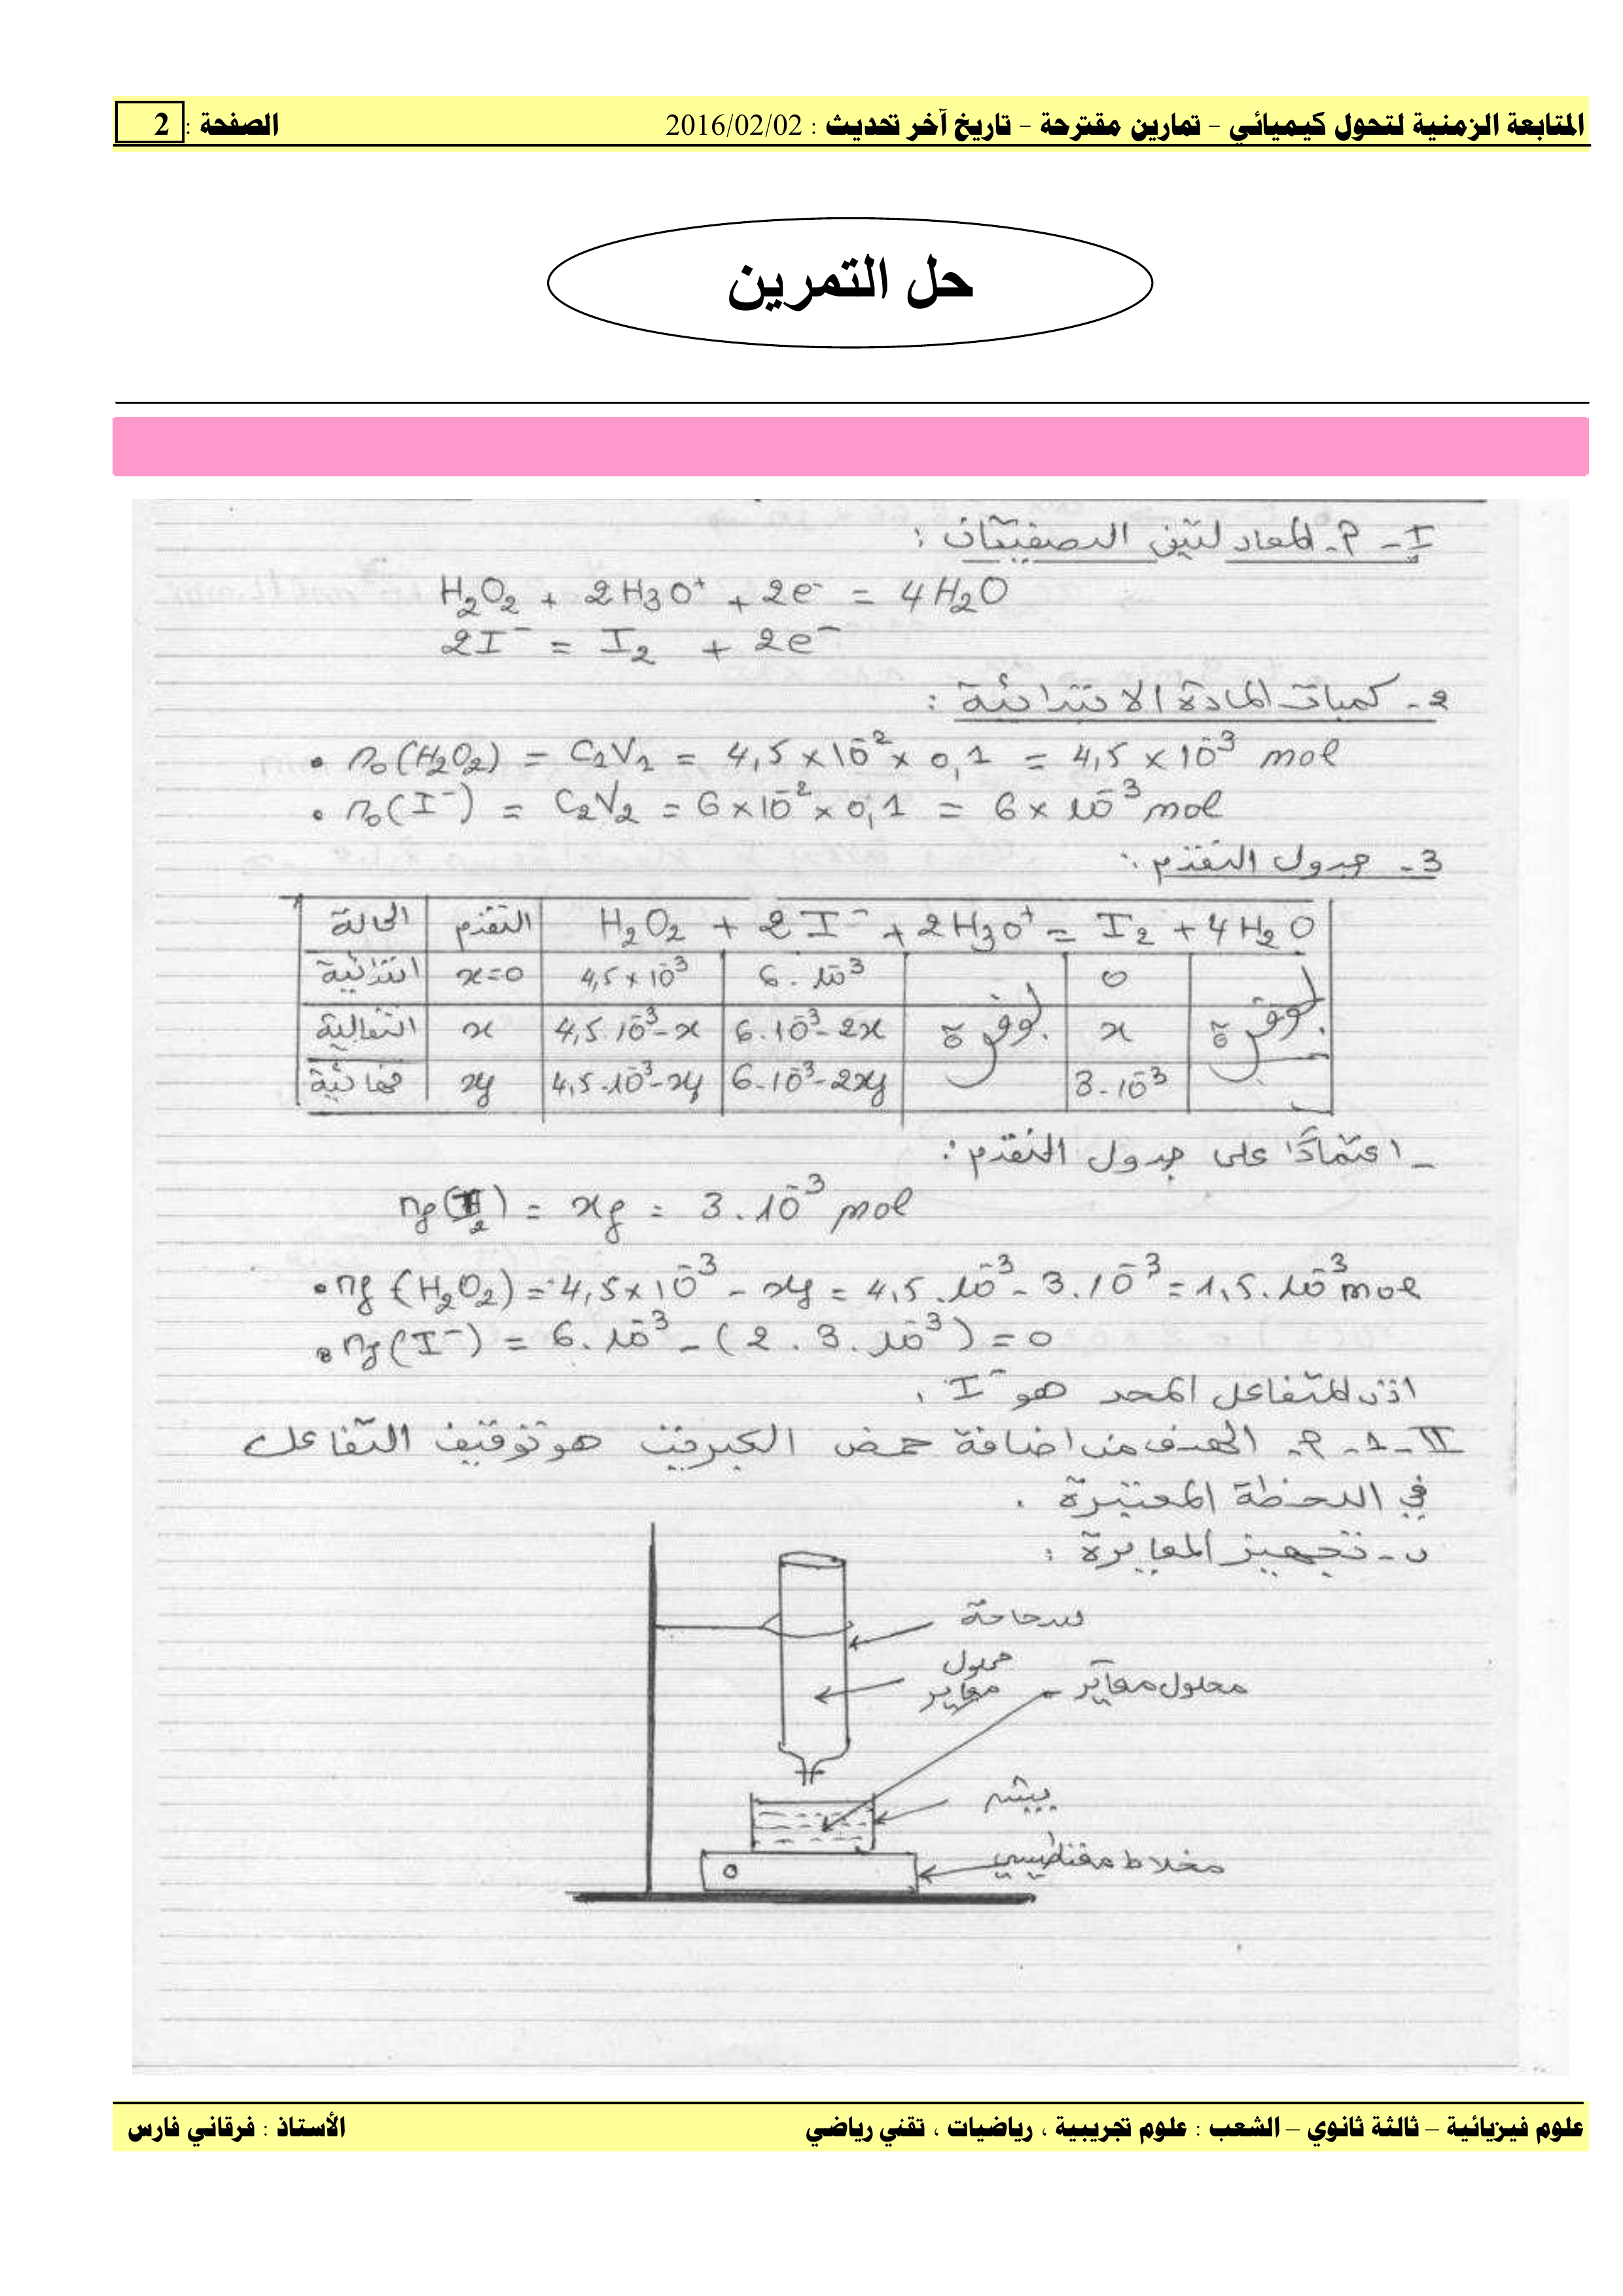 المتابعة الزمنية لتحول كيميائي - تمارين مقترحة - تاريخ آخر تحديث : 2016/02/02 الصفحة : 2
حل التمرين
I - P - المعادلتين النصفيتان :
H₂O₂ + 2H₃O⁺ + 2e⁻ = 4H₂O
2I⁻ = I₂ + 2e⁻
2- كميات المادة الابتدائية :
• n₀(H₂O₂) = C₁V₁ = 4,5 × 10⁻² × 0,1 = 4,5 × 10⁻³ mol
• n₀(I⁻) = C₂V₂ = 6 × 10⁻² × 0,1 = 6 × 10⁻³ mol
3- جدول التقدم :
الحالة | التقدم | H₂O₂ + 2I⁻ + 2H₃O⁺ = I₂ + 4H₂O
ابتدائية | x=0 | 4,5 × 10⁻³ | 6 . 10⁻³ | بوفرة | 0 | بوفرة
انتقالية | x | 4,5 . 10⁻³ - x | 6 . 10⁻³ - 2x | x
نهائية | xf | 4,5 . 10⁻³ - xf | 6 . 10⁻³ - 2xf | 3 . 10⁻³
- اعتمادًا على جدول التقدم :
nf(I₂) = xf = 3 . 10⁻³ mol
• nf(H₂O₂) = 4,5 × 10⁻³ - xf = 4,5 . 10⁻³ - 3 . 10⁻³ = 1,5 . 10⁻³ mol
• nf(I⁻) = 6 . 10⁻³ - (2 . 3 . 10⁻³) = 0
اذن المتفاعل المحد هو I⁻ .
II - 1 - P - الهدف من اضافة حمض الكبريت هو توقيف التفاعل
في اللحظة المعتبرة .
ب - تجهيز المعايرة :
سحاحة
محلول معاير
محلول معاير
بيشر
مخلاط مغناطيسي
علوم فيزيائية – ثالثة ثانوي – الشعب : علوم تجريبية ، رياضيات ، تقني رياضي الأستاذ : فرقاني فارس